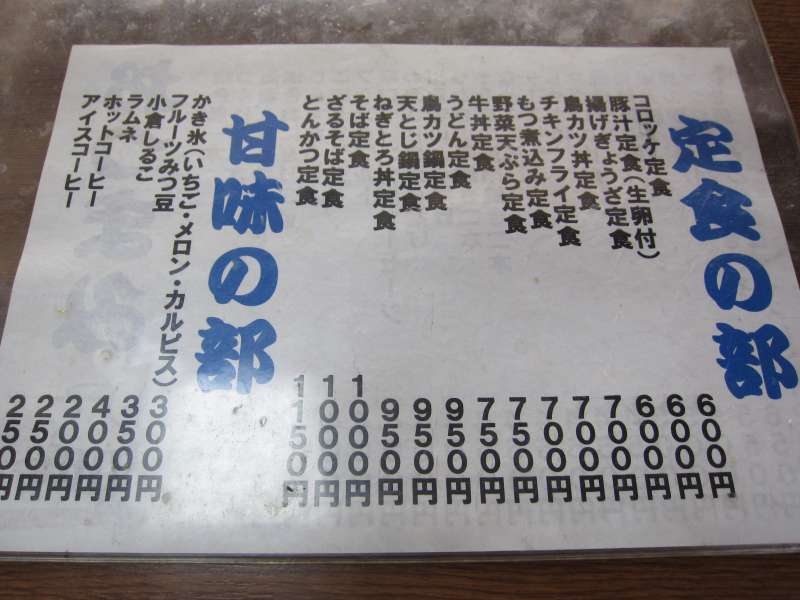 定食の部
コロッケ定食
豚汁定食(生卵付)
揚げぎょうざ定食
鳥カツ丼定食
チキンフライ定食
もつ煮込み定食
野菜天ぷら定食
牛丼定食
うどん定食
鳥カツ鍋定食
天とじ鍋定食
ねぎとろ丼定食
そば定食
ざるそば定食
とんかつ定食
600円
600円
600円
700円
700円
700円
750円
750円
950円
950円
950円
1000円
1000円
1150円
甘味の部
かき氷(いちご・メロン・カルピス) 300円
フルーツみつ豆 350円
小倉しるこ 400円
ラムネ 200円
ホットコーヒー 250円
アイスコーヒー 250円